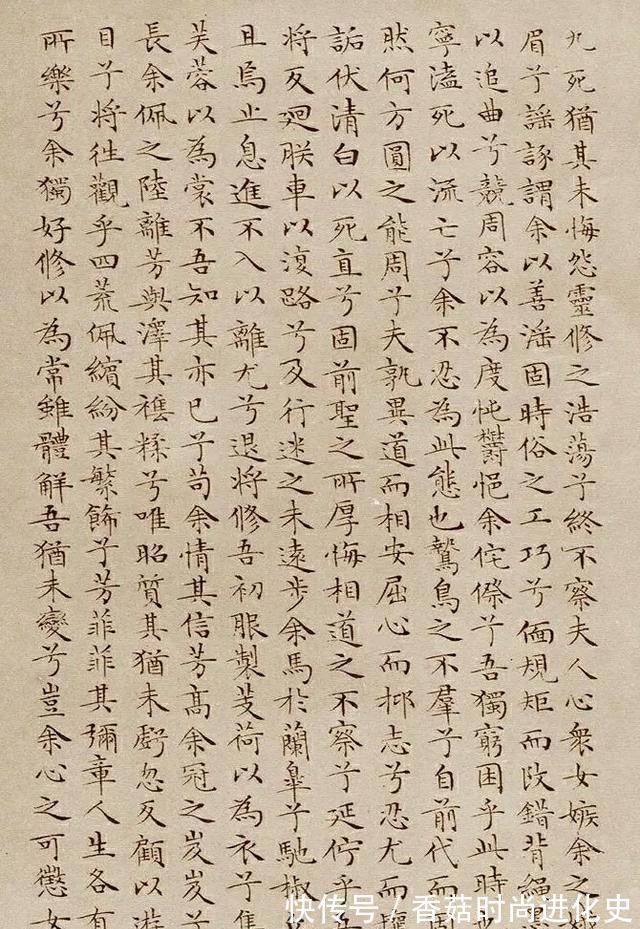 九死猶其未悔怨靈修之浩蕩兮終不察夫人心衆女嫉余之
眉兮謡諑謂余以善滛固時俗之工巧兮偭規矩而改錯背繩
以追曲兮競周容以為度忳鬱悒余侘傺兮吾獨窮困乎此時
寧溘死以流亡兮余不忍為此態也鷙鳥之不羣兮自前代而固
然何方圓之能周兮夫孰異道而相安屈心而抑志兮忍尤而攘
詬伏清白以死直兮固前聖之所厚悔相道之不察兮延佇乎
將反廻朕車以復路兮及行迷之未遠步余馬於蘭皋兮馳椒
且焉止息進不入以離尤兮退將修吾初服製芰荷以為衣兮集
芙蓉以為裳不吾知其亦已兮苟余情其信芳高余冠之岌岌兮
長余佩之陸離芳與澤其襍糅兮唯昭質其猶未虧忽反顧以遊
目兮將往觀乎四荒佩繽紛其繁飾兮芳菲菲其彌章人生各有
所樂兮余獨好修以為常雖體解吾猶未變兮豈余心之可懲女
快传号/香菇时尚进化史